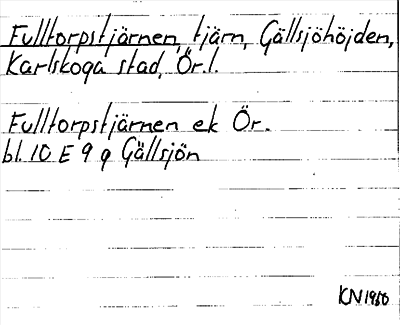 Fulltorpstjärnen, tjärn, Gällsjöhöjden,
Karlskoga stad, Ör.l.
Fulltorpstjärnen ek Ör.
bl. 10 E 9 g Gällsjön
KN1980